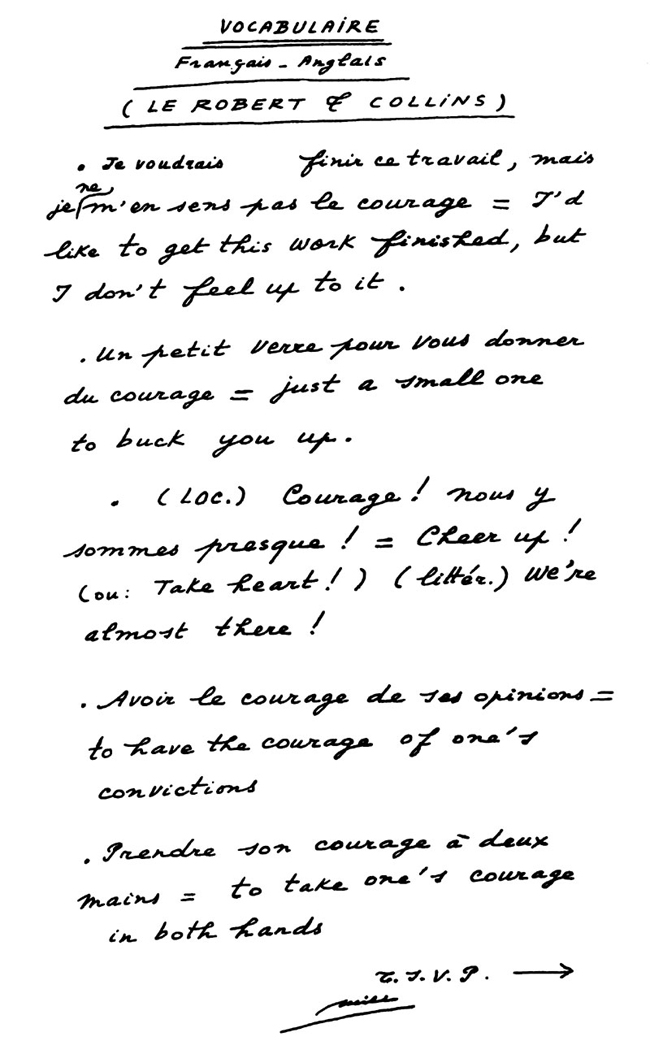 VOCABULAIRE
Français - Anglais
( LE ROBERT & COLLINS )
• Je voudrais finir ce travail, mais
ne
je m'en sens pas le courage = I'd
like to get this work finished, but
I don't feel up to it.
. Un petit verre pour vous donner
du courage = just a small one
to buck you up.
. (LOC.) Courage ! nous y
sommes presque ! = Cheer up !
(ou: Take heart ! ) (littér.) We're
almost there !
. Avoir le courage de ses opinions =
to have the courage of one's
convictions
. Prendre son courage à deux
mains = to take one's courage
in both hands
T.S.V.P. →